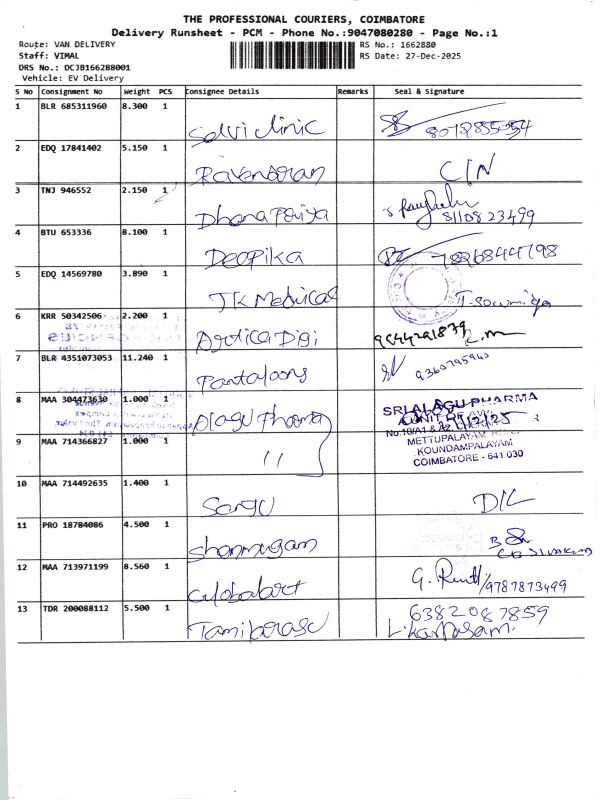 THE PROFESSIONAL COURIERS, COIMBATORE
Delivery Runsheet - PCM - Phone No.:9047080280 - Page No.:1
Route: VAN DELIVERY RS No.: 1662880
Staff: VIMAL RS Date: 27-Dec-2025
DRS No.: DCJB166288001
Vehicle: EV Delivery
S No Consignment No Weight PCS Consignee Details Remarks Seal & Signature
1 BLR 685311960 8.300 1 Selvi clinic
2 EDQ 17841402 5.150 1 Ravendran C/N
3 TNJ 946552 2.150 1 Dhana Priya 8110823499
4 BTU 653336 8.100 1 Deepika
5 EDQ 14569780 3.890 1 JK Medical T. Sowmiya
6 KRR 50342506 2.200 1
7 BLR 4351073053 11.240 1 Pantaloons 9360795960
8 MAA 304473630 1.000 1 Alagu Pharma SRI ALAGU PHARMA
METTUPALAYAM ROAD
KOUNDAMPALAYAM
COIMBATORE - 641 030
9 MAA 714366827 1.000 1 "
10 MAA 714492635 1.400 1 D/L
11 PRO 18784086 4.500 1 Shanmugam
12 MAA 713971199 8.560 1 Globalart 9787873499
13 TDR 200088112 5.500 1 Tamilarasu 6382087859